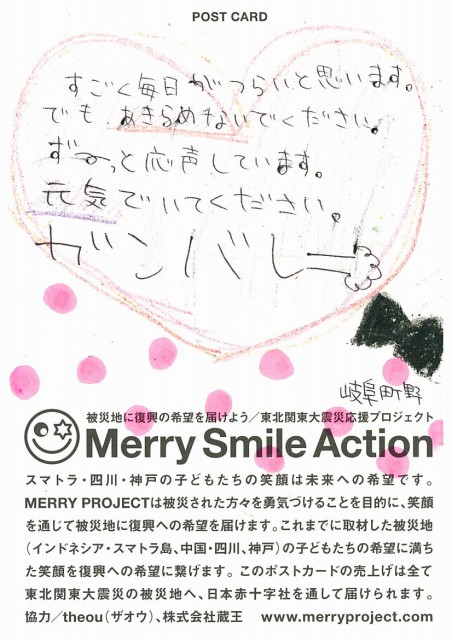 POST CARD
すごく毎日がつらいと思います。
でも、あきらめないでください。
ずーっと応声しています。
元気でいてください。
ガンバレー
岐阜町野
被災地に復興の希望を届けよう／東北関東大震災応援プロジェクト
Merry Smile Action
スマトラ・四川・神戸の子どもたちの笑顔は未来への希望です。
MERRY PROJECTは被災された方々を勇気づけることを目的に、笑顔
を通じて被災地に復興への希望を届けます。これまでに取材した被災地
（インドネシア・スマトラ島、中国・四川、神戸）の子どもたちの希望に満ち
た笑顔を復興への希望に繋げます。このポストカードの売上げは全て
東北関東大震災の被災地へ、日本赤十字社を通して届けられます。
協力／theou（ザオウ）、株式会社蔵王 www.merryproject.com